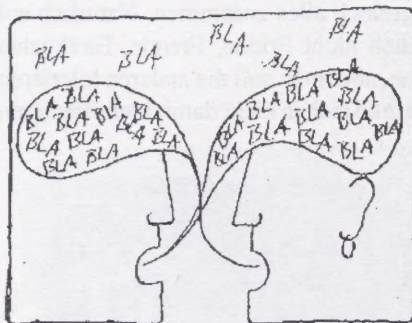 BLA BLA BLA BLA BLA
BLA BLA BLA BLA BLA BLA
BLA BLA BLA BLA BLA BLA
BLA BLA BLA BLA BLA BLA BLA
BLA BLA BLA BLA BLA BLA BLA
BLA BLA BLA BLA BLA